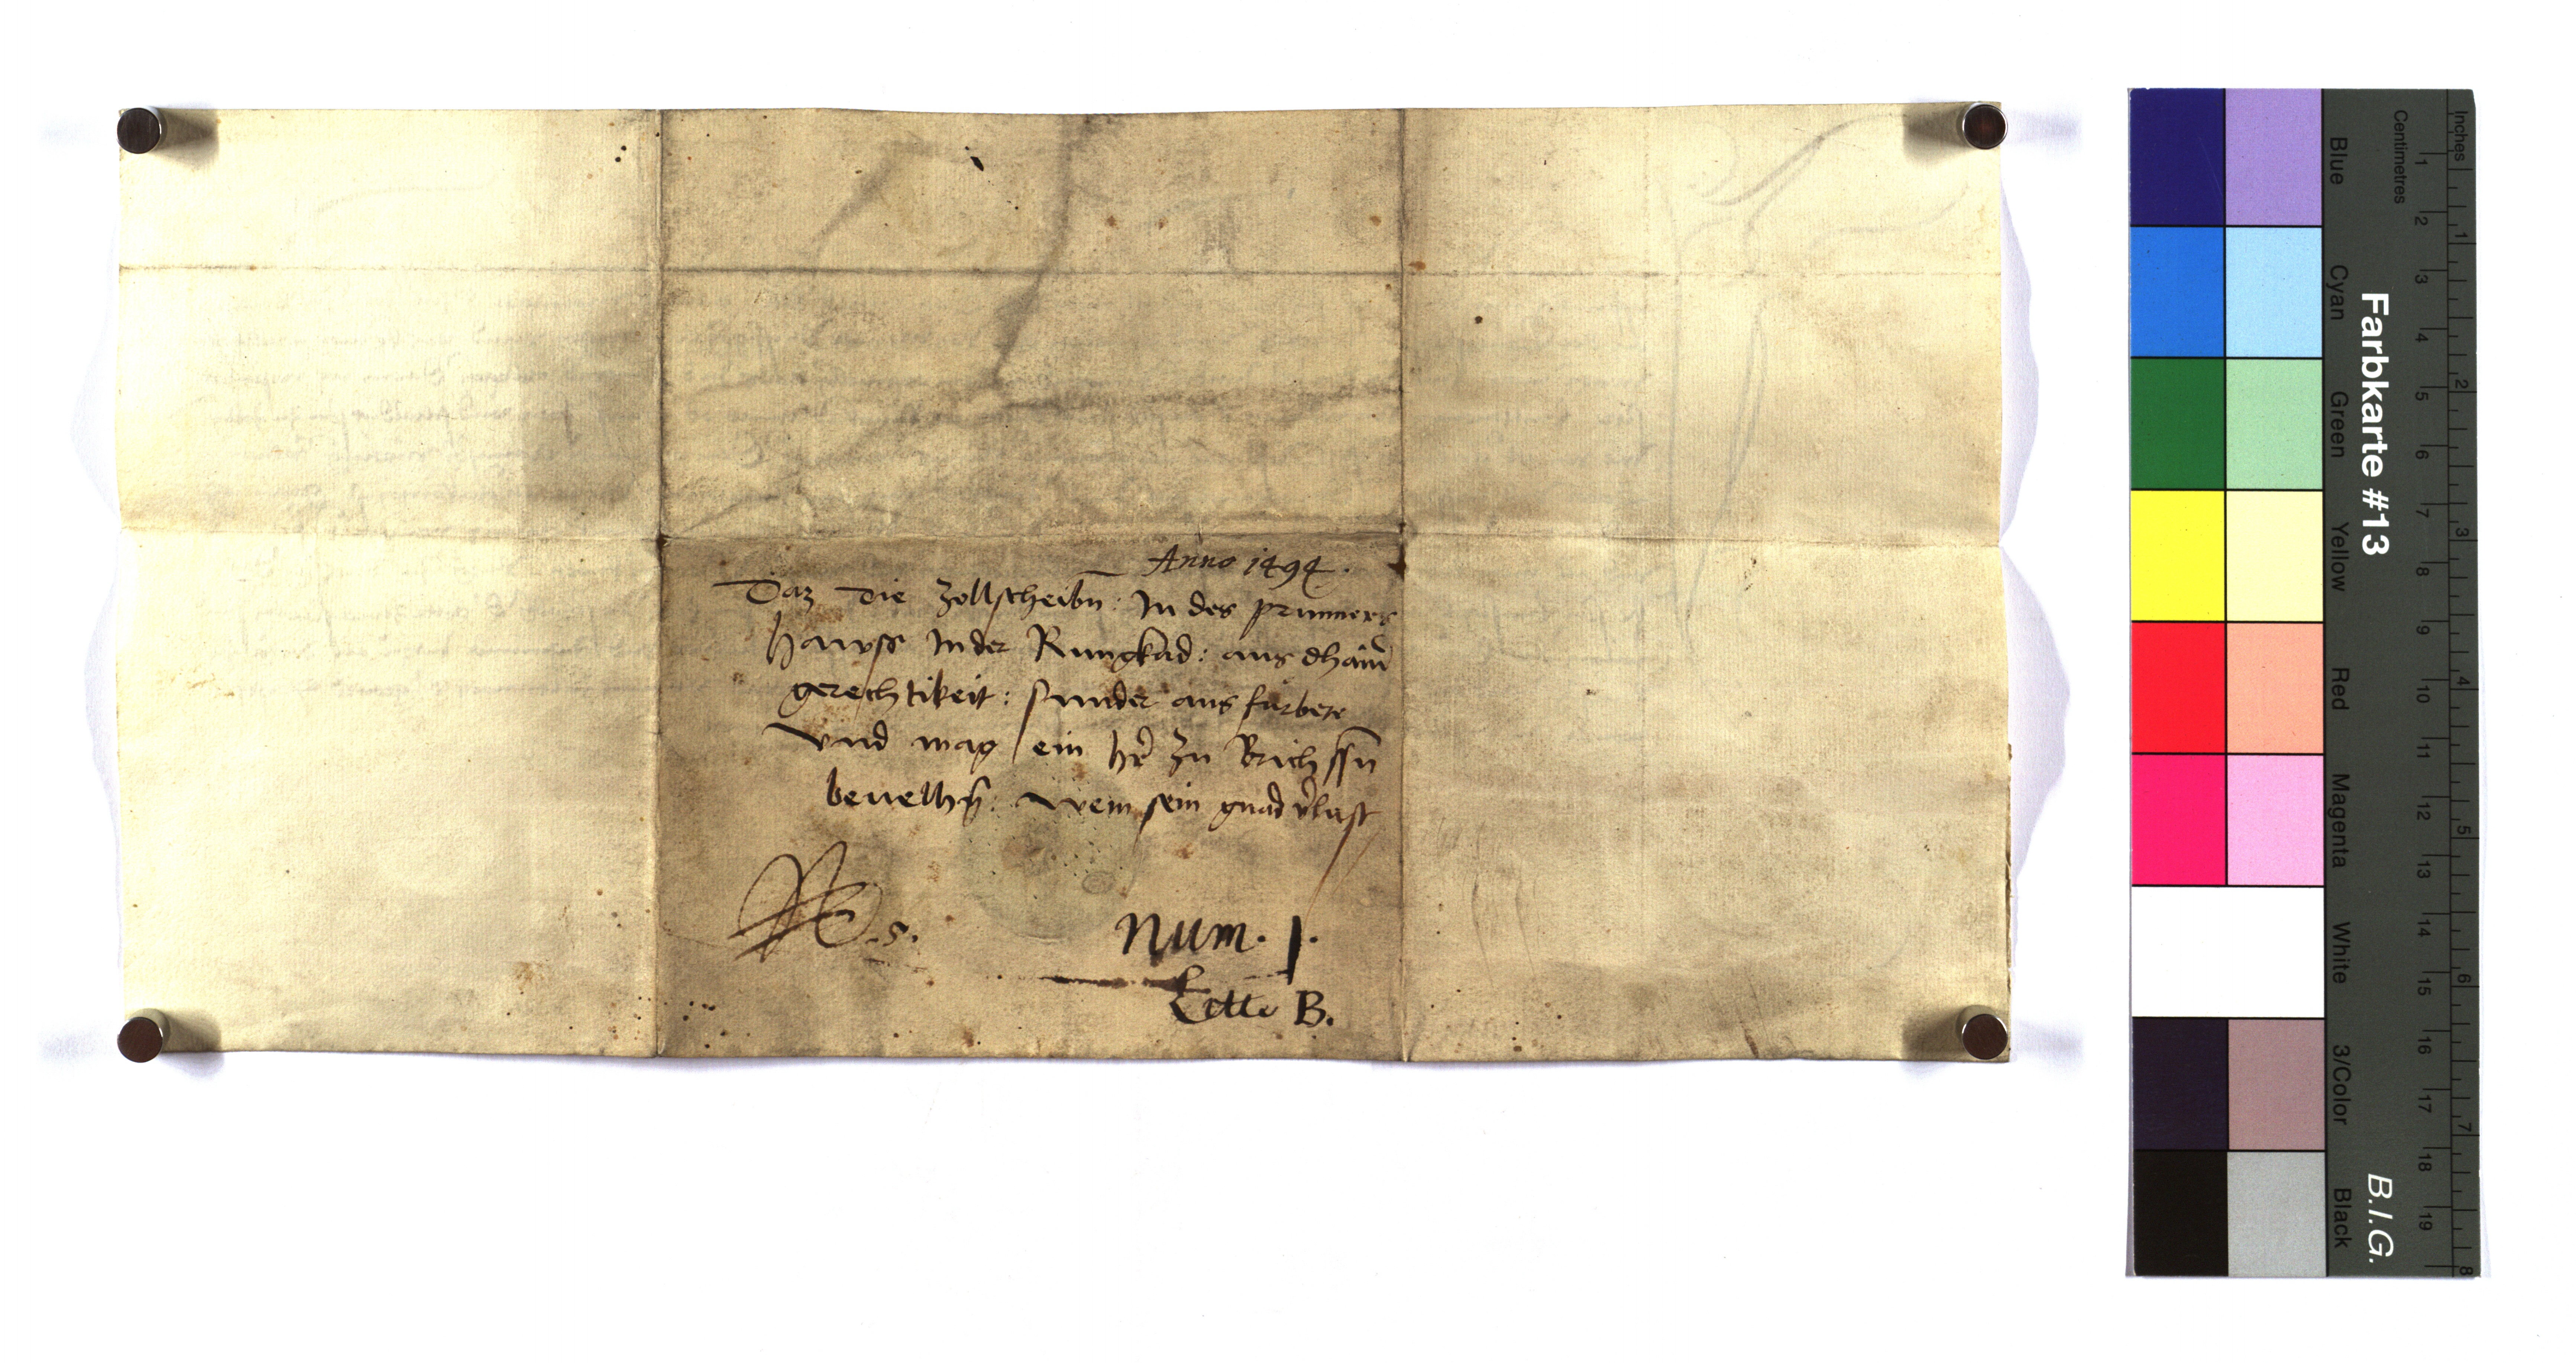 Anno 1494.
Daz die Zollscheibn̄: In des prunners
hawss In der Rungkad: aus dhain̄
gerechtikeit: sunder aus furbete
Vnd mag ein hr̄ zu Brichssn̄
beuelhn̄: wem sein gnad v̄lust
No. 5.
Num. 1.
Litte B.
Farbkarte #13
B.I.G.
Inches
Centimetres
1 2 3 4 5 6 7 8 9 10 11 12 13 14 15 16 17 18 19
1 2 3 4 5 6 7 8
Blue
Cyan
Green
Yellow
Red
Magenta
White
3/Color
Black